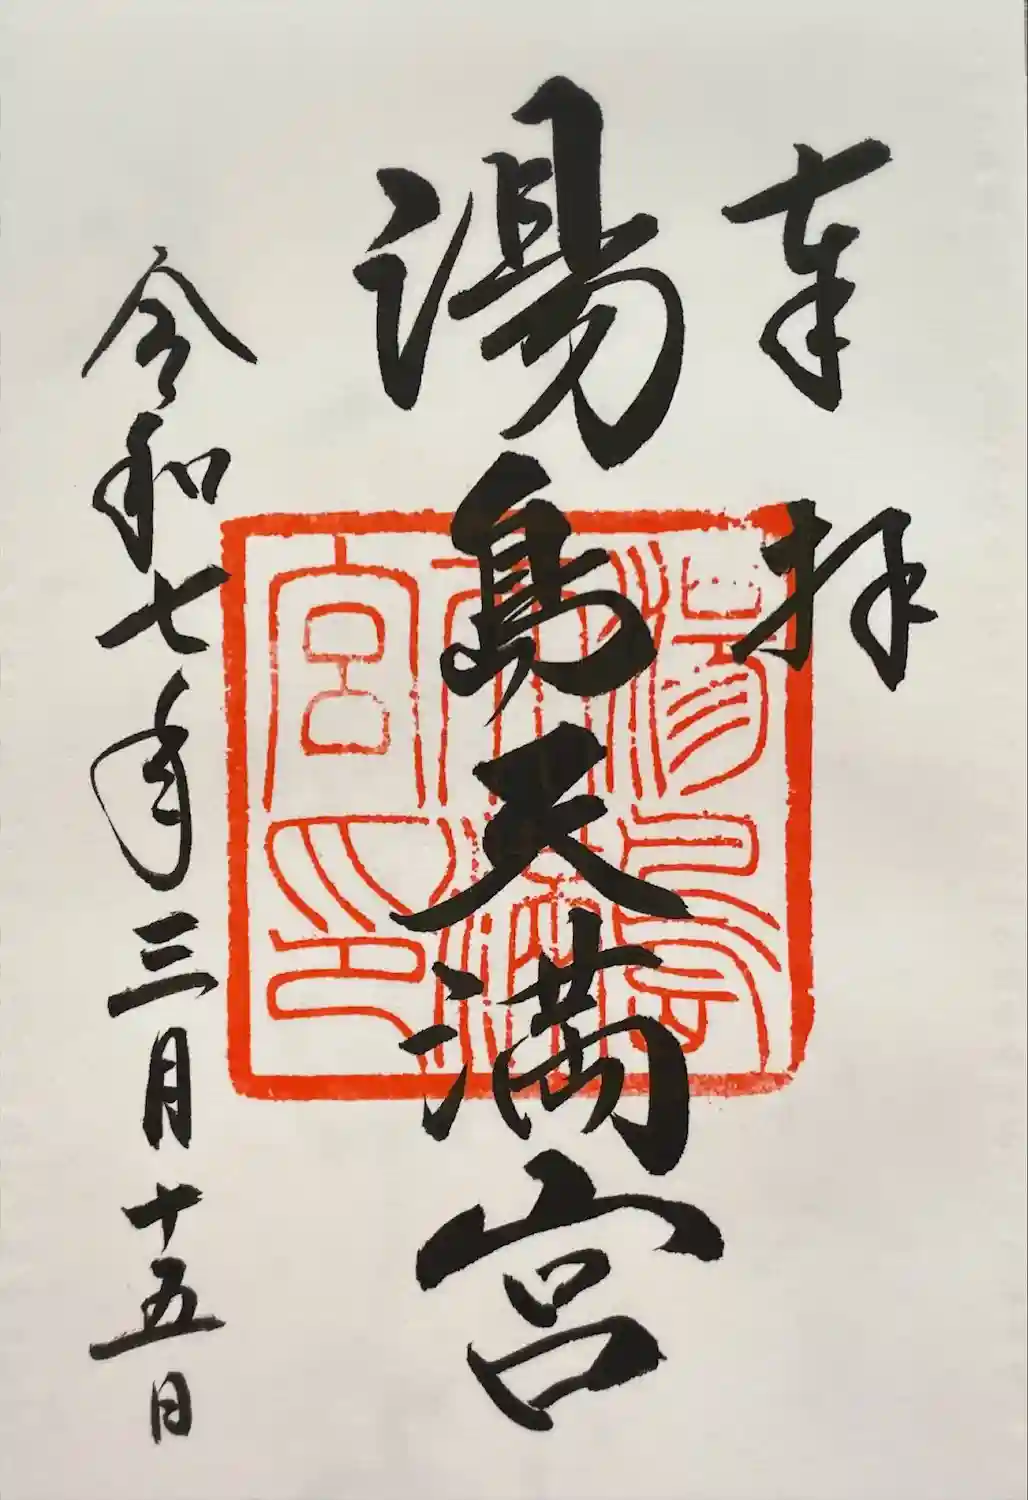 奉拝
湯島天満宮
令和七年三月十五日
湯島
天満
宮印